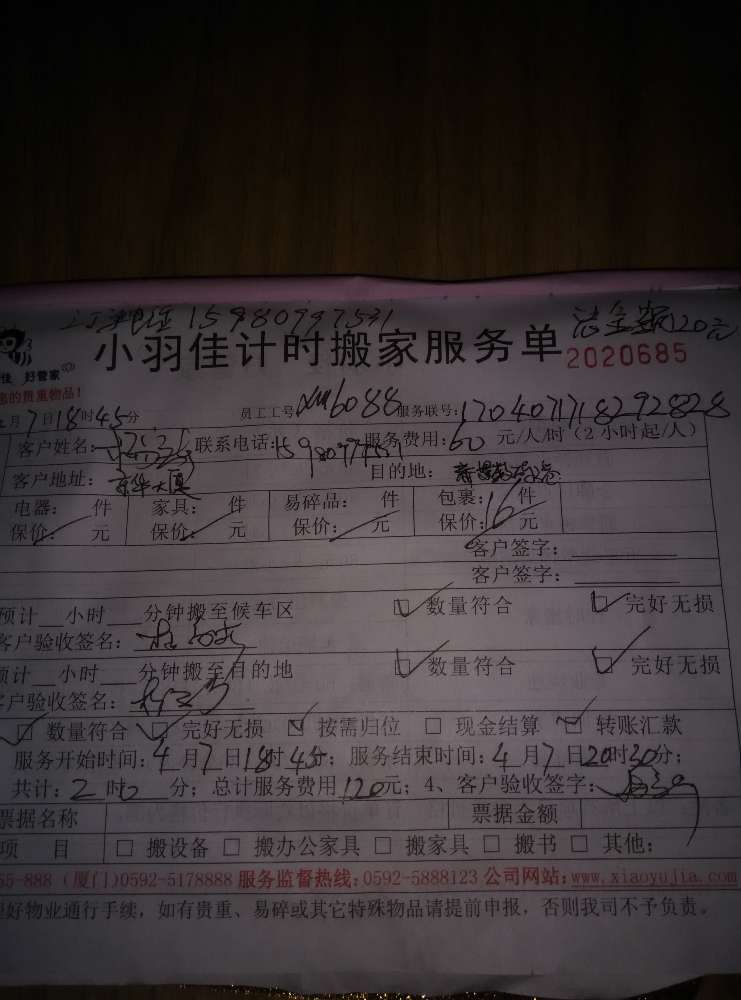 15980997531 总金额120元
小羽佳计时搬家服务单 2020685
佳 好管家
的贵重物品!
月7日18时45分 员工工号 XM6088 服务联号:170407171829 2828
客户姓名: 联系电话:15980997531 服务费用:60元/人/时(2小时起/人)
客户地址:京华大厦 目的地:
电器: 件 家具: 件 易碎品: 件 包裹:16件
保价: 元 保价: 元 保价: 元 保价: 元
客户签字:
客户签字:
预计__小时__分钟搬至候车区 ☑ 数量符合 ☑ 完好无损
客户验收签名:
预计__小时__分钟搬至目的地 ☑ 数量符合 ☑ 完好无损
客户验收签名:
☑ 数量符合 ☑ 完好无损 ☑ 按需归位 □ 现金结算 ☑ 转账汇款
服务开始时间:4月7日18时45分;服务结束时间:4月7日20时30分;
共计:2时0分;总计服务费用120元;4、客户验收签字:
票据名称 票据金额
项 目 □ 搬设备 □ 搬办公家具 □ 搬家具 □ 搬书 □ 其他:
55-888 (厦门)0592-5178888 服务监督热线:0592-5888123 公司网站:www.xiaoyujia.com
好物业通行手续,如有贵重、易碎或其它特殊物品请提前申报,否则我司不予负责。